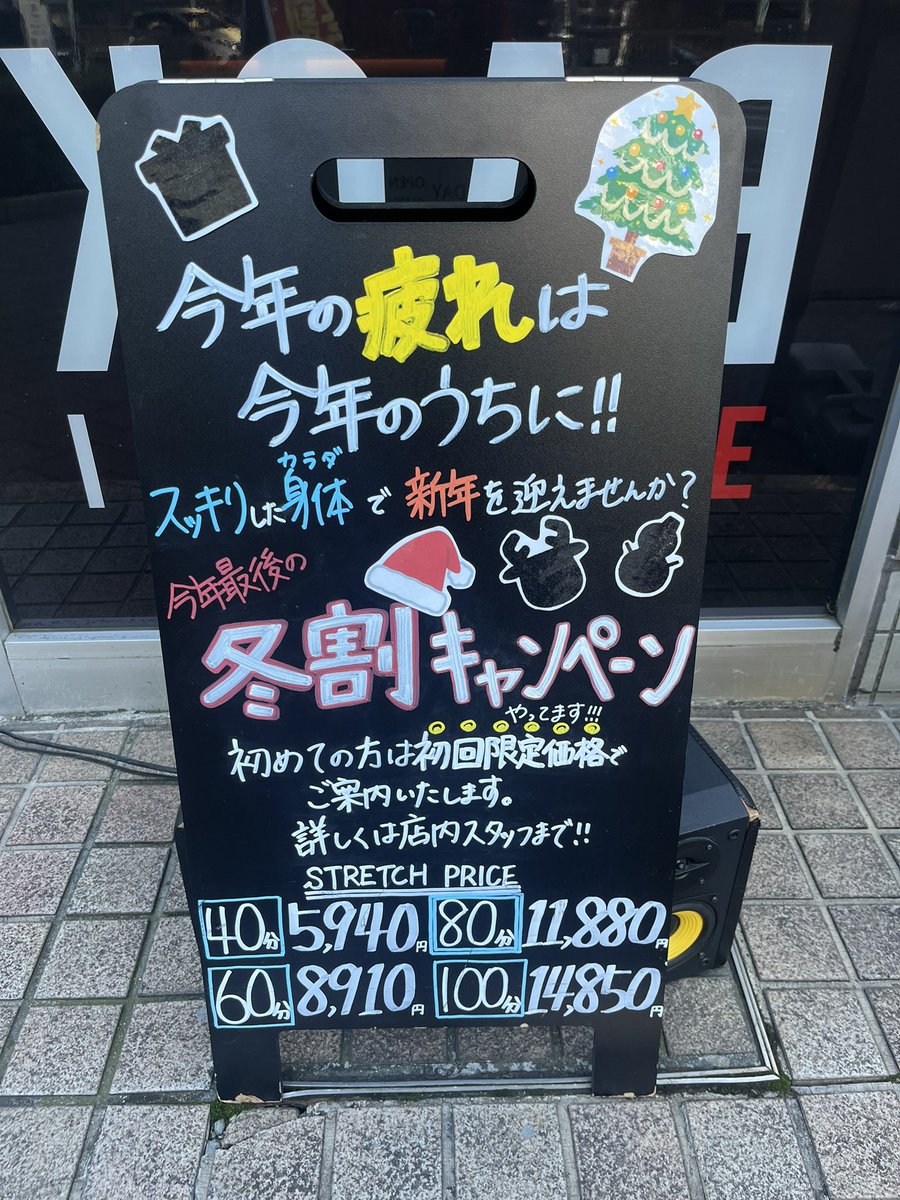 今年の疲れは
今年のうちに!!
カラダ
スッキリした身体で新年を迎えませんか?
今年最後の
冬割キャンペーン
やってます!!!
初めての方は初回限定価格で
ご案内いたします。
詳しくは店内スタッフまで!!
STRETCH PRICE
40分 5,940円 80分 11,880円
60分 8,910円 100分 14,850円